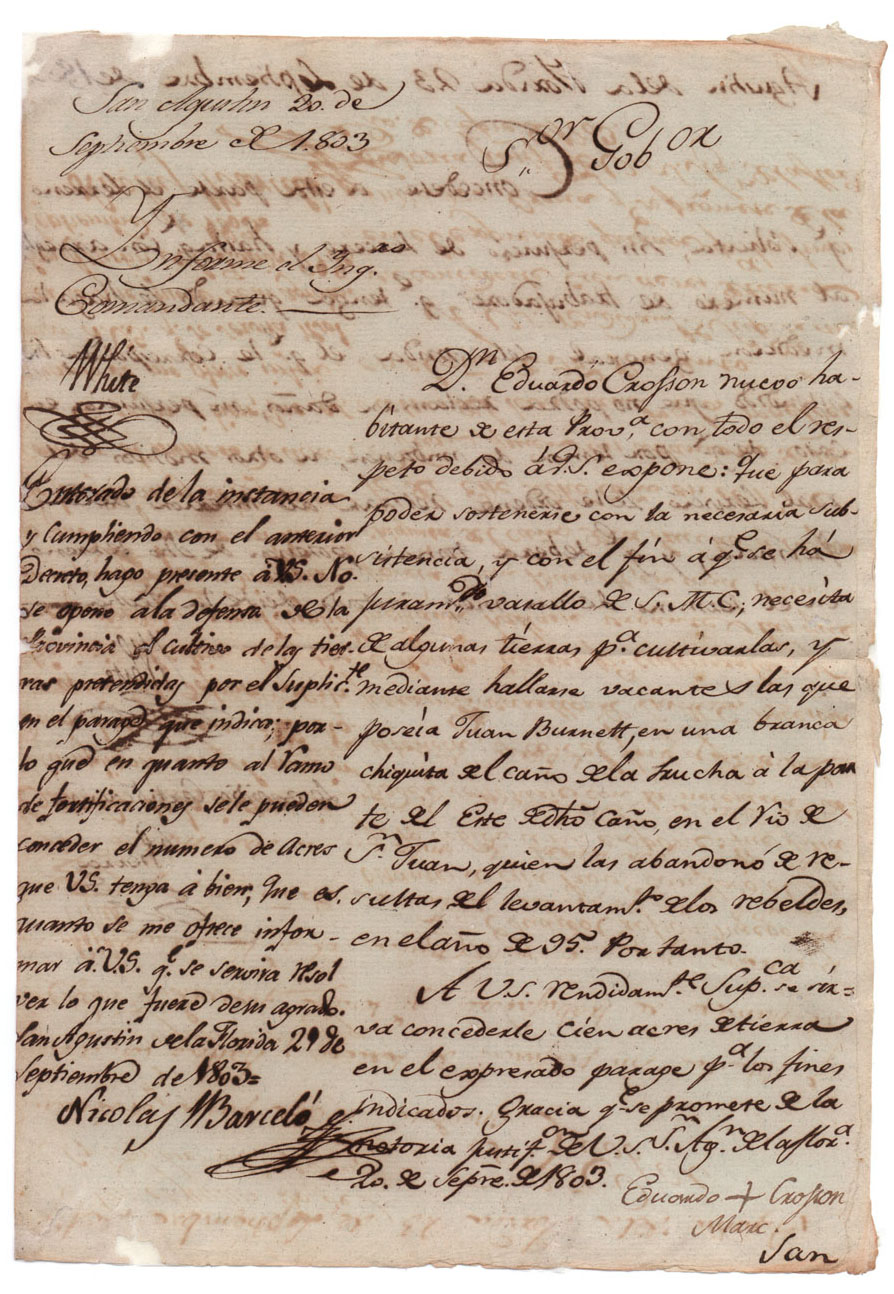 San Agustin 20. de
Septiembre de 1.803
S.or Gob.or
Ynforme el Yng.ro
Comandante.
White
D.n Eduardo Crosson nuevo ha-
bitante de esta Prov.a con todo el res-
peto debido á V.S. expone: que para
poder sostenerse con la necesaria sub-
sistencia, y con el fin á q.e se há
juram.do vasallo de S. M. C., necesita
de algunas tierras p.a cultivarlas, y
mediante hallarse vacantes las que
poseia Juan Burnett, en una branca
chiquita del caño de la trucha à la par
te del Este de dho Caño, en el rio de
S.n Juan, quien las abandonó de re-
sultas del levantam.to de los rebeldes,
en el año de 95. Por tanto.
A V.S. rendidam.te Sup.ca se sir-
va concederle cien acres de tierra
en el expresado parage p.a los fines
indicados. Gracia q.e se promete de la
notoria justif.n de V.S. S.n Ag.n de la Flor.a
20. de Sepre. de 1803.
Eduardo + Crosson
Marc.
San
Enterado de la instancia
y cumpliendo con el anterior
Decreto, hago presente à VS. No
se opone a la defensa de la
Provincia el cultivo de las tier-
ras pretendidas por el Suplic.te
en el parage que indica; por-
lo que en quanto al ramo
de fortificaciones se le pueden
conceder el numero de Acres
que VS. tenga à bien, que es
quanto se me ofrece infor-
mar à V.S. q.e se servira resol
ver lo que fuere de su agrado.
San Agustin de la Florida 21 de
Septiembre de 1803=
Nicolas Barceló